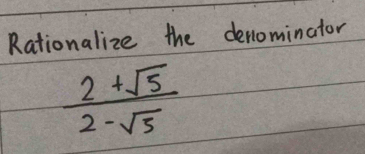 Rationalize the denominator
2 + √5
2 - √5